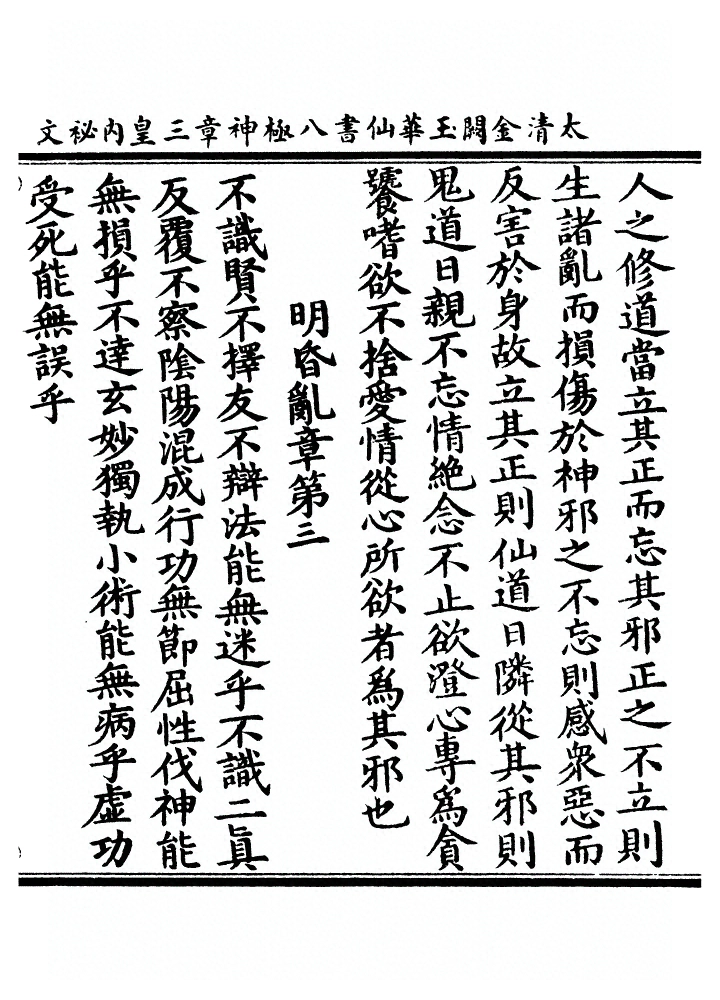 太清金闕玉華仙書八極神章三皇內祕文
人之修道當立其正而忘其邪正之不立則
生諸亂而損傷於神邪之不忘則感衆惡而
反害於身故立其正則仙道日隣從其邪則
鬼道日親不忘情絶念不止欲澄心專爲貪
饕嗜欲不捨愛情從心所欲者爲其邪也
明昏亂章第三
不識賢不擇友不辯法能無迷乎不識二眞
反覆不察陰陽混成行功無節屈性伐神能
無損乎不達玄妙獨執小術能無病乎虛功
受死能無誤乎